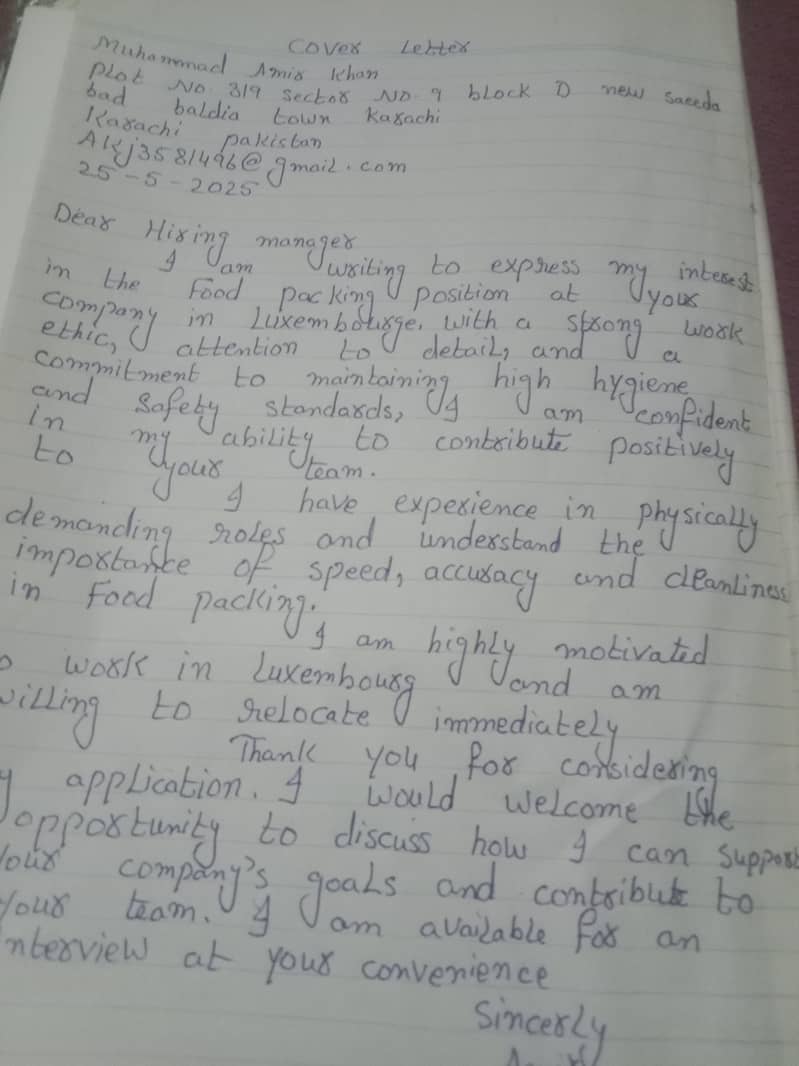 Cover Letter
Muhammad Amir Khan
Plot No 319 Sector No 9 block D new saeeda
bad baldia town Karachi
Karachi pakistan
Akj3581496@gmail.com
25-5-2025
Dear Hiring manager
I am writing to express my interest
in the Food packing position at your
company in Luxembourge, with a strong work
ethic, attention to detail, and a
commitment to maintaining high hygiene
and safety standards, I am confident
in my ability to contribute positively
to your team.
I have experience in physically
demanding roles and understand the
importance of speed, accuracy and cleanliness
in Food packing.
I am highly motivated
o work in Luxembourg and am
willing to relocate immediately
Thank you for considering
y application. I would welcome the
opportunity to discuss how I can support
your company's goals and contribute to
your team. I am available for an
nterview at your convenience
Sincerly